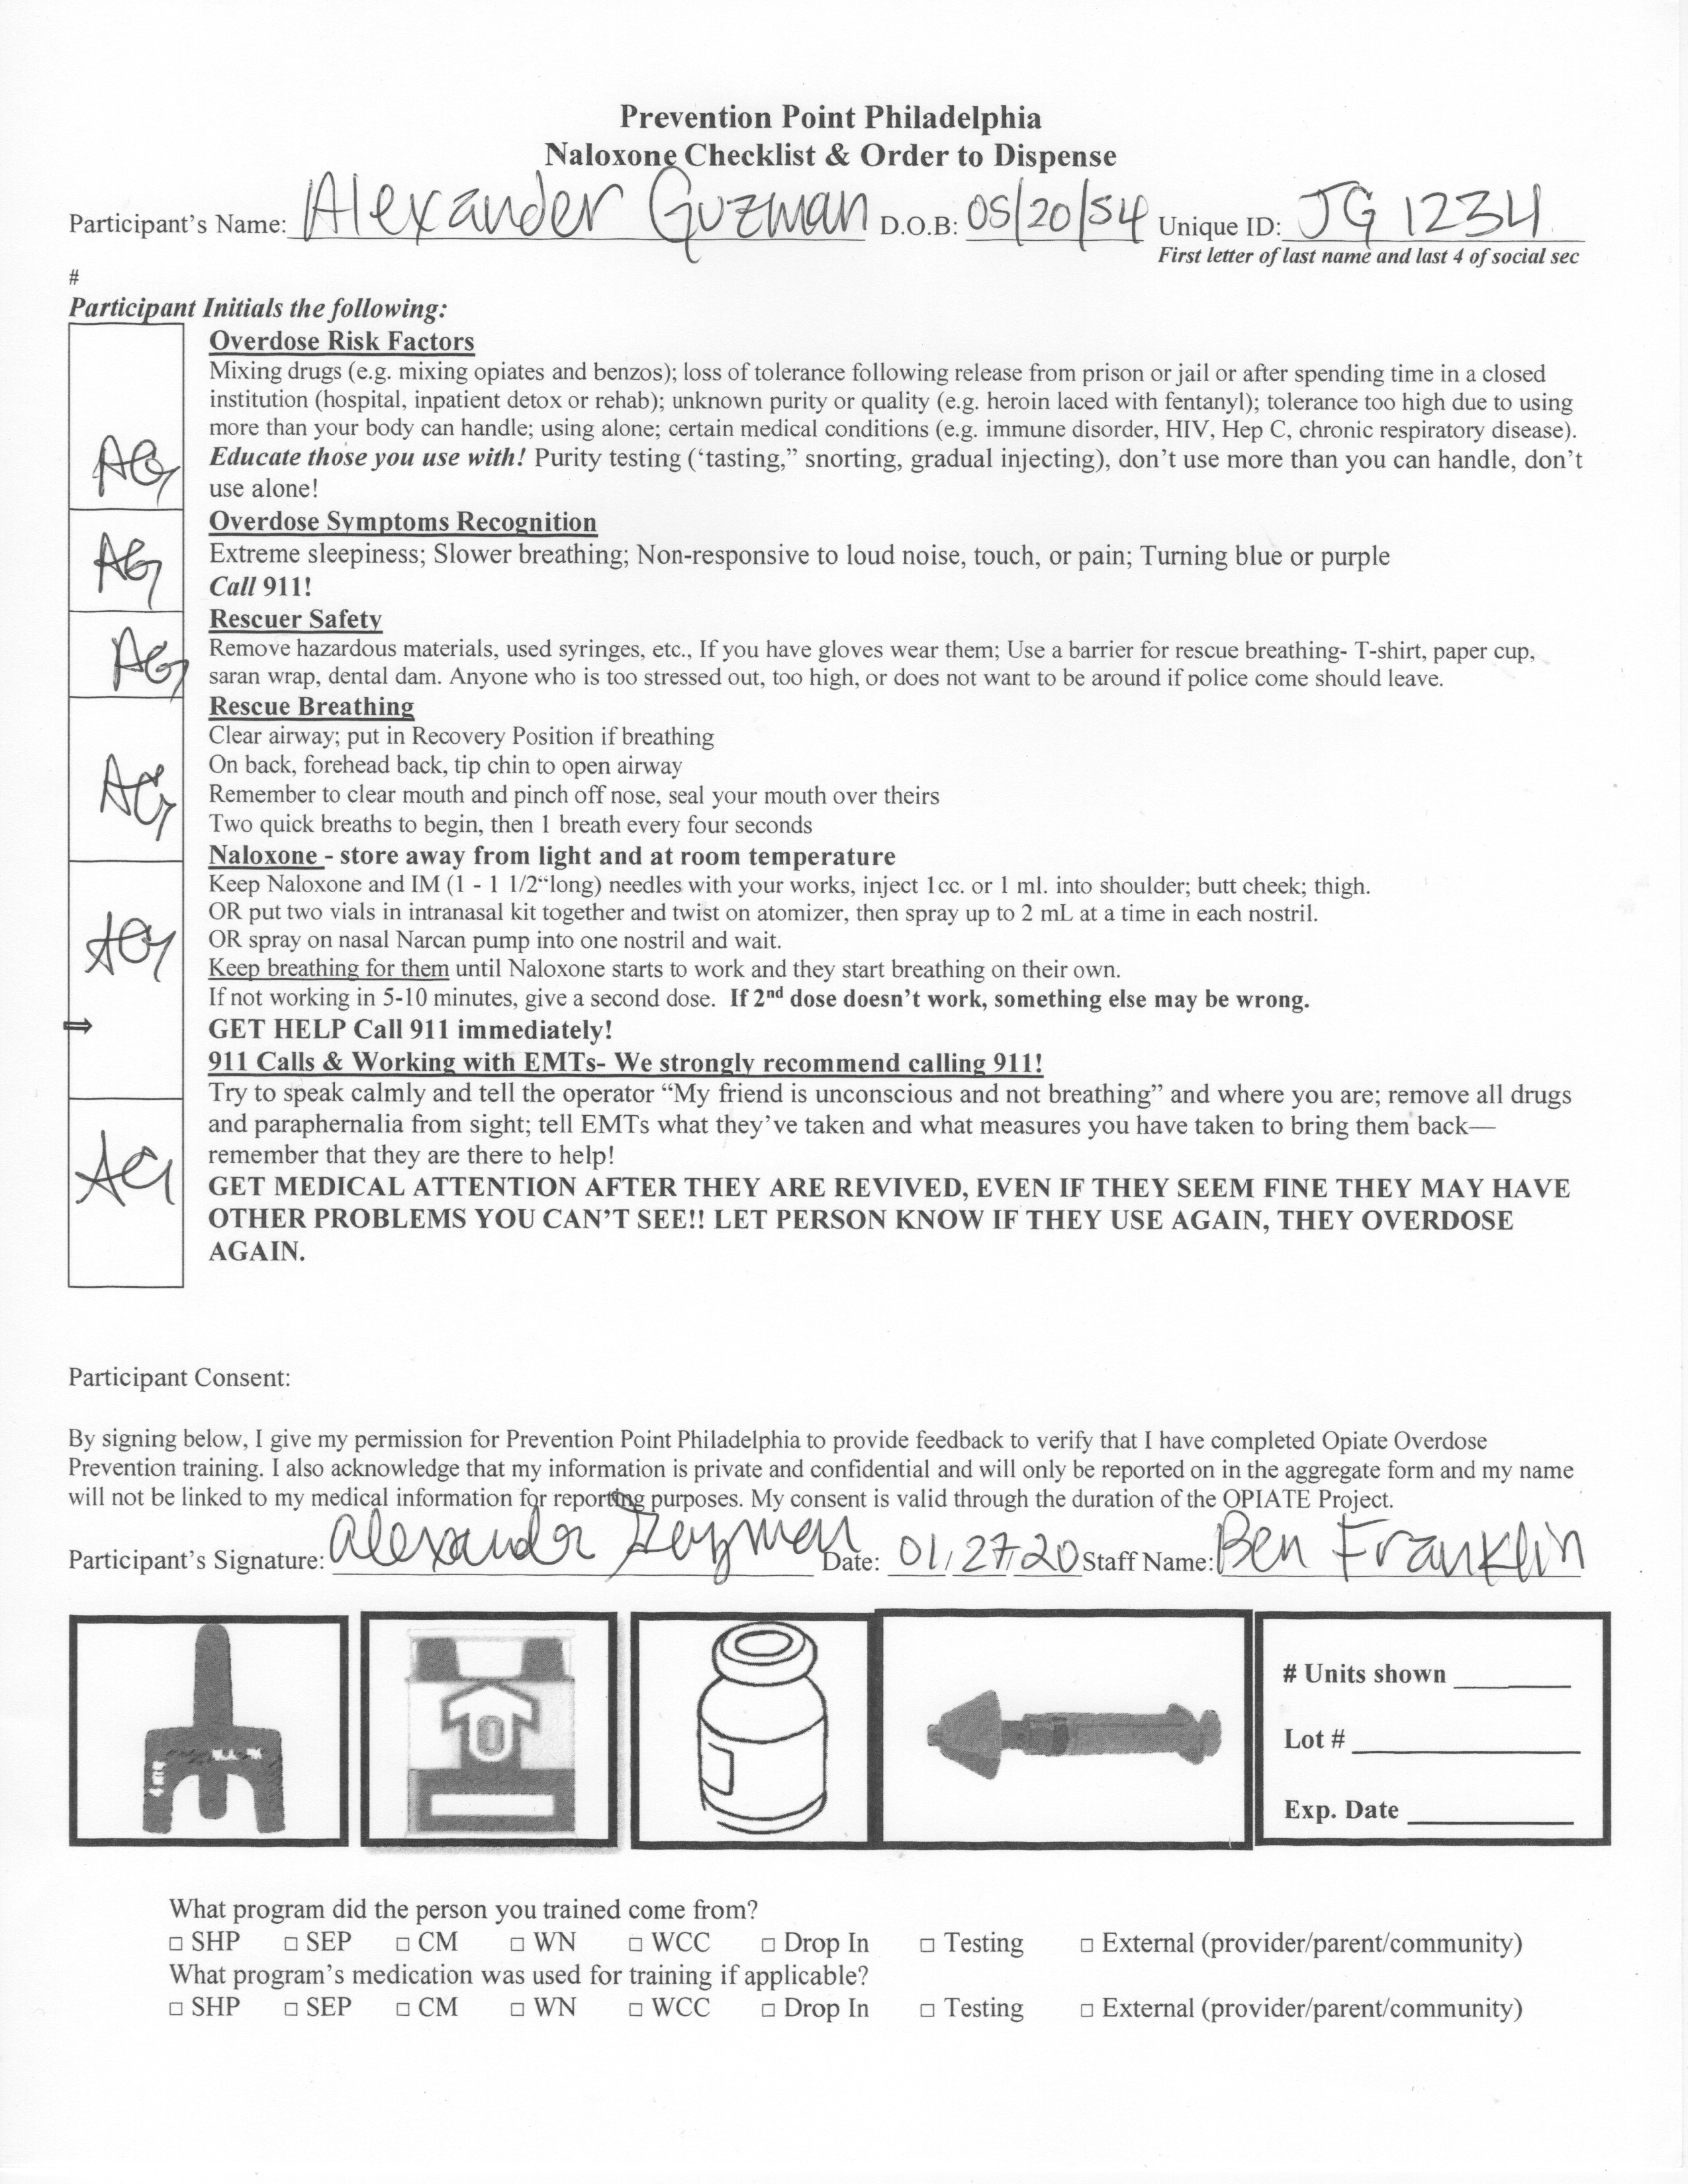 Prevention Point Philadelphia
Naloxone Checklist & Order to Dispense
Participant's Name: Alexander Guzman D.O.B: 05/20/54 Unique ID: JG 1234
First letter of last name and last 4 of social sec
#
Participant Initials the following:
Overdose Risk Factors
Mixing drugs (e.g. mixing opiates and benzos); loss of tolerance following release from prison or jail or after spending time in a closed
institution (hospital, inpatient detox or rehab); unknown purity or quality (e.g. heroin laced with fentanyl); tolerance too high due to using
more than your body can handle; using alone; certain medical conditions (e.g. immune disorder, HIV, Hep C, chronic respiratory disease).
AG Educate those you use with! Purity testing (‘tasting,” snorting, gradual injecting), don’t use more than you can handle, don’t
use alone!
Overdose Symptoms Recognition
AG Extreme sleepiness; Slower breathing; Non-responsive to loud noise, touch, or pain; Turning blue or purple
Call 911!
Rescuer Safety
AG Remove hazardous materials, used syringes, etc., If you have gloves wear them; Use a barrier for rescue breathing- T-shirt, paper cup,
saran wrap, dental dam. Anyone who is too stressed out, too high, or does not want to be around if police come should leave.
Rescue Breathing
Clear airway; put in Recovery Position if breathing
On back, forehead back, tip chin to open airway
AG Remember to clear mouth and pinch off nose, seal your mouth over theirs
Two quick breaths to begin, then 1 breath every four seconds
Naloxone - store away from light and at room temperature
Keep Naloxone and IM (1 - 1 1/2“long) needles with your works, inject 1cc. or 1 ml. into shoulder; butt cheek; thigh.
OR put two vials in intranasal kit together and twist on atomizer, then spray up to 2 mL at a time in each nostril.
AG OR spray on nasal Narcan pump into one nostril and wait.
Keep breathing for them until Naloxone starts to work and they start breathing on their own.
If not working in 5-10 minutes, give a second dose. If 2nd dose doesn’t work, something else may be wrong.
⇒ GET HELP Call 911 immediately!
911 Calls & Working with EMTs- We strongly recommend calling 911!
Try to speak calmly and tell the operator “My friend is unconscious and not breathing” and where you are; remove all drugs
and paraphernalia from sight; tell EMTs what they’ve taken and what measures you have taken to bring them back—
remember that they are there to help!
AG GET MEDICAL ATTENTION AFTER THEY ARE REVIVED, EVEN IF THEY SEEM FINE THEY MAY HAVE
OTHER PROBLEMS YOU CAN’T SEE!! LET PERSON KNOW IF THEY USE AGAIN, THEY OVERDOSE
AGAIN.
Participant Consent:
By signing below, I give my permission for Prevention Point Philadelphia to provide feedback to verify that I have completed Opiate Overdose
Prevention training. I also acknowledge that my information is private and confidential and will only be reported on in the aggregate form and my name
will not be linked to my medical information for reporting purposes. My consent is valid through the duration of the OPIATE Project.
Participant's Signature: Alexander Guzman Date: 01/27/20 Staff Name: Ben Franklin
# Units shown
Lot #
Exp. Date
What program did the person you trained come from?
□ SHP □ SEP □ CM □ WN □ WCC □ Drop In □ Testing □ External (provider/parent/community)
What program’s medication was used for training if applicable?
□ SHP □ SEP □ CM □ WN □ WCC □ Drop In □ Testing □ External (provider/parent/community)